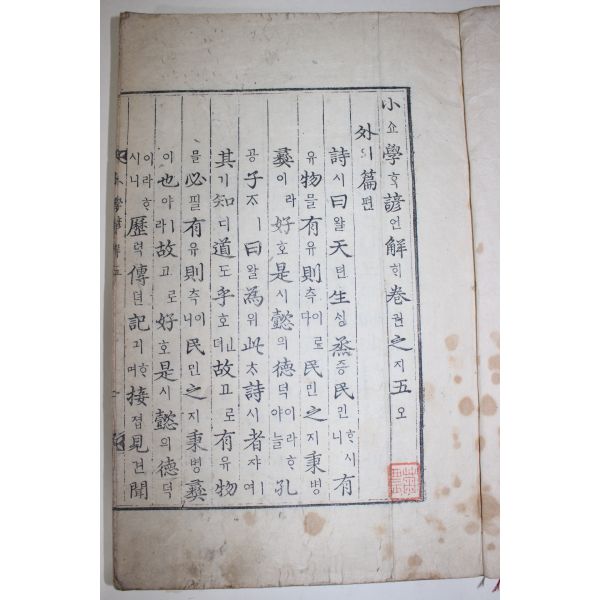 小쇼學ᄒᆞᆨ諺언解ᄒᆡ卷권之지五오
外외篇편
詩시曰왈天텬生ᄉᆡᆼ烝증民민ᄒᆞ시니有
유物믈有유則측이로다民민之지秉병
彝이라好호是시懿의德덕이라ᄒᆞ야늘孔
공子ᄌᆞㅣ曰왈為위此ᄎᆞ詩시者쟈ㅣ여
其기知디道도乎호ㄴ뎌故고로有유物
믈必필有유則측이니民민之지秉병彝
이也야라故고로好호是시懿의德덕
이라ᄒᆞ시니歷력傳뎐記긔ᄒᆞ며接졉見견聞
小學諺解五